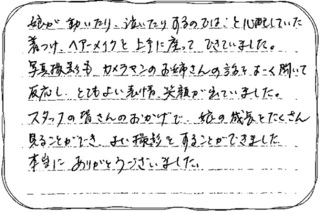 娘が動いたり、泣いたりするのでは、と心配していた
着つけ、ヘアーメイクと上手に座って、できていました。
写真撮影も、カメラマンのお姉さんの話をよく聞いて
反応し、とてもよい表情、笑顔が出ていました。
スタッフの皆さんのおかげで、娘の成長をたくさん
見ることができ、よい撮影をすることができました
本当に ありがとうございました。